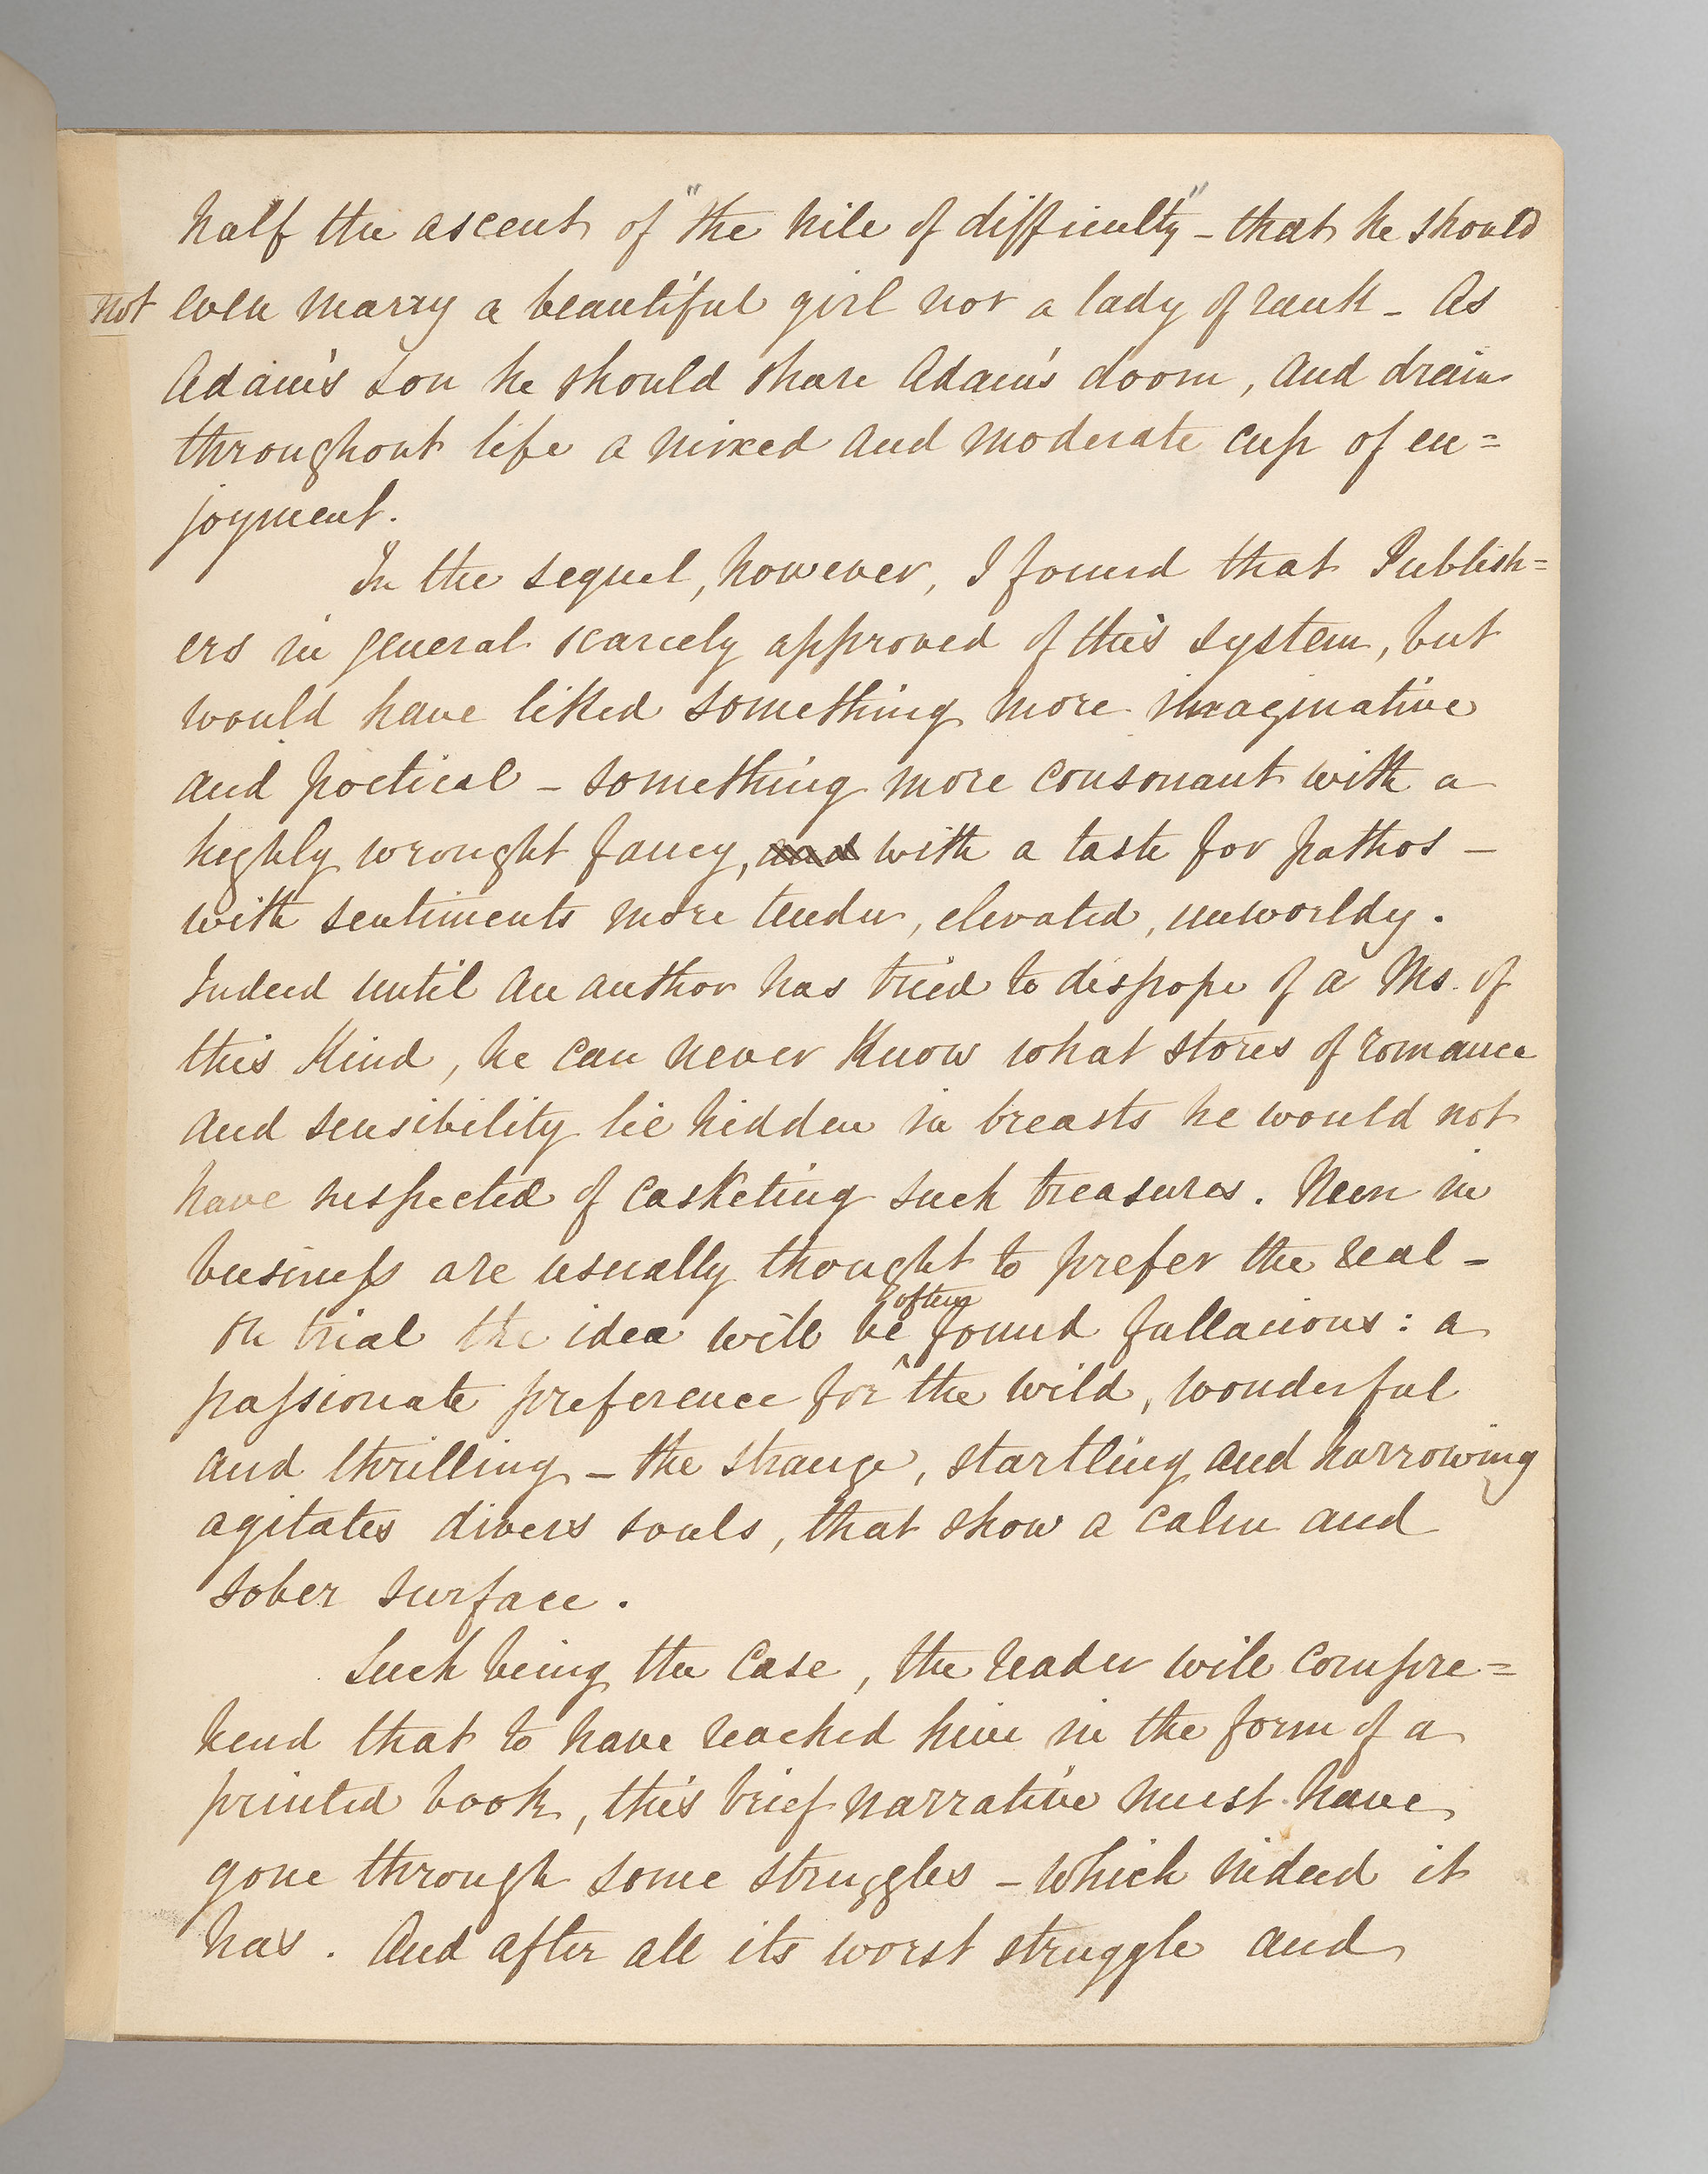 half the ascent of "the hill of difficulty" - that he should
not even marry a beautiful girl nor a lady of rank - As
Adam's son he should share Adam's doom, and drain
throughout life a mixed and moderate cup of en=
joyment.
In the sequel, however, I found that Publish=
ers in general scarcely approved of this system, but
would have liked something more imaginative
and poetical - something more consonant with a
highly wrought fancy, and with a taste for pathos -
with sentiments more tender, elevated, unworldy.
Indeed until an author has tried to dispose of a Ms. of
this kind, he can never know what stores of romance
and sensibility lie hidden in breasts he would not
have suspected of casketing such treasures. Men in
business are usually thought to prefer the real -
On trial the idea will be often found fallacious: a
passionate preference for the wild, wonderful
and thrilling - the strange, startling and harrowing
agitates divers souls, that show a calm and
sober surface.
Such being the case, the reader will compre=
hend that to have reached him in the form of a
printed book, this brief narrative must have
gone through some struggles - which indeed it
has. And after all its worst struggle and